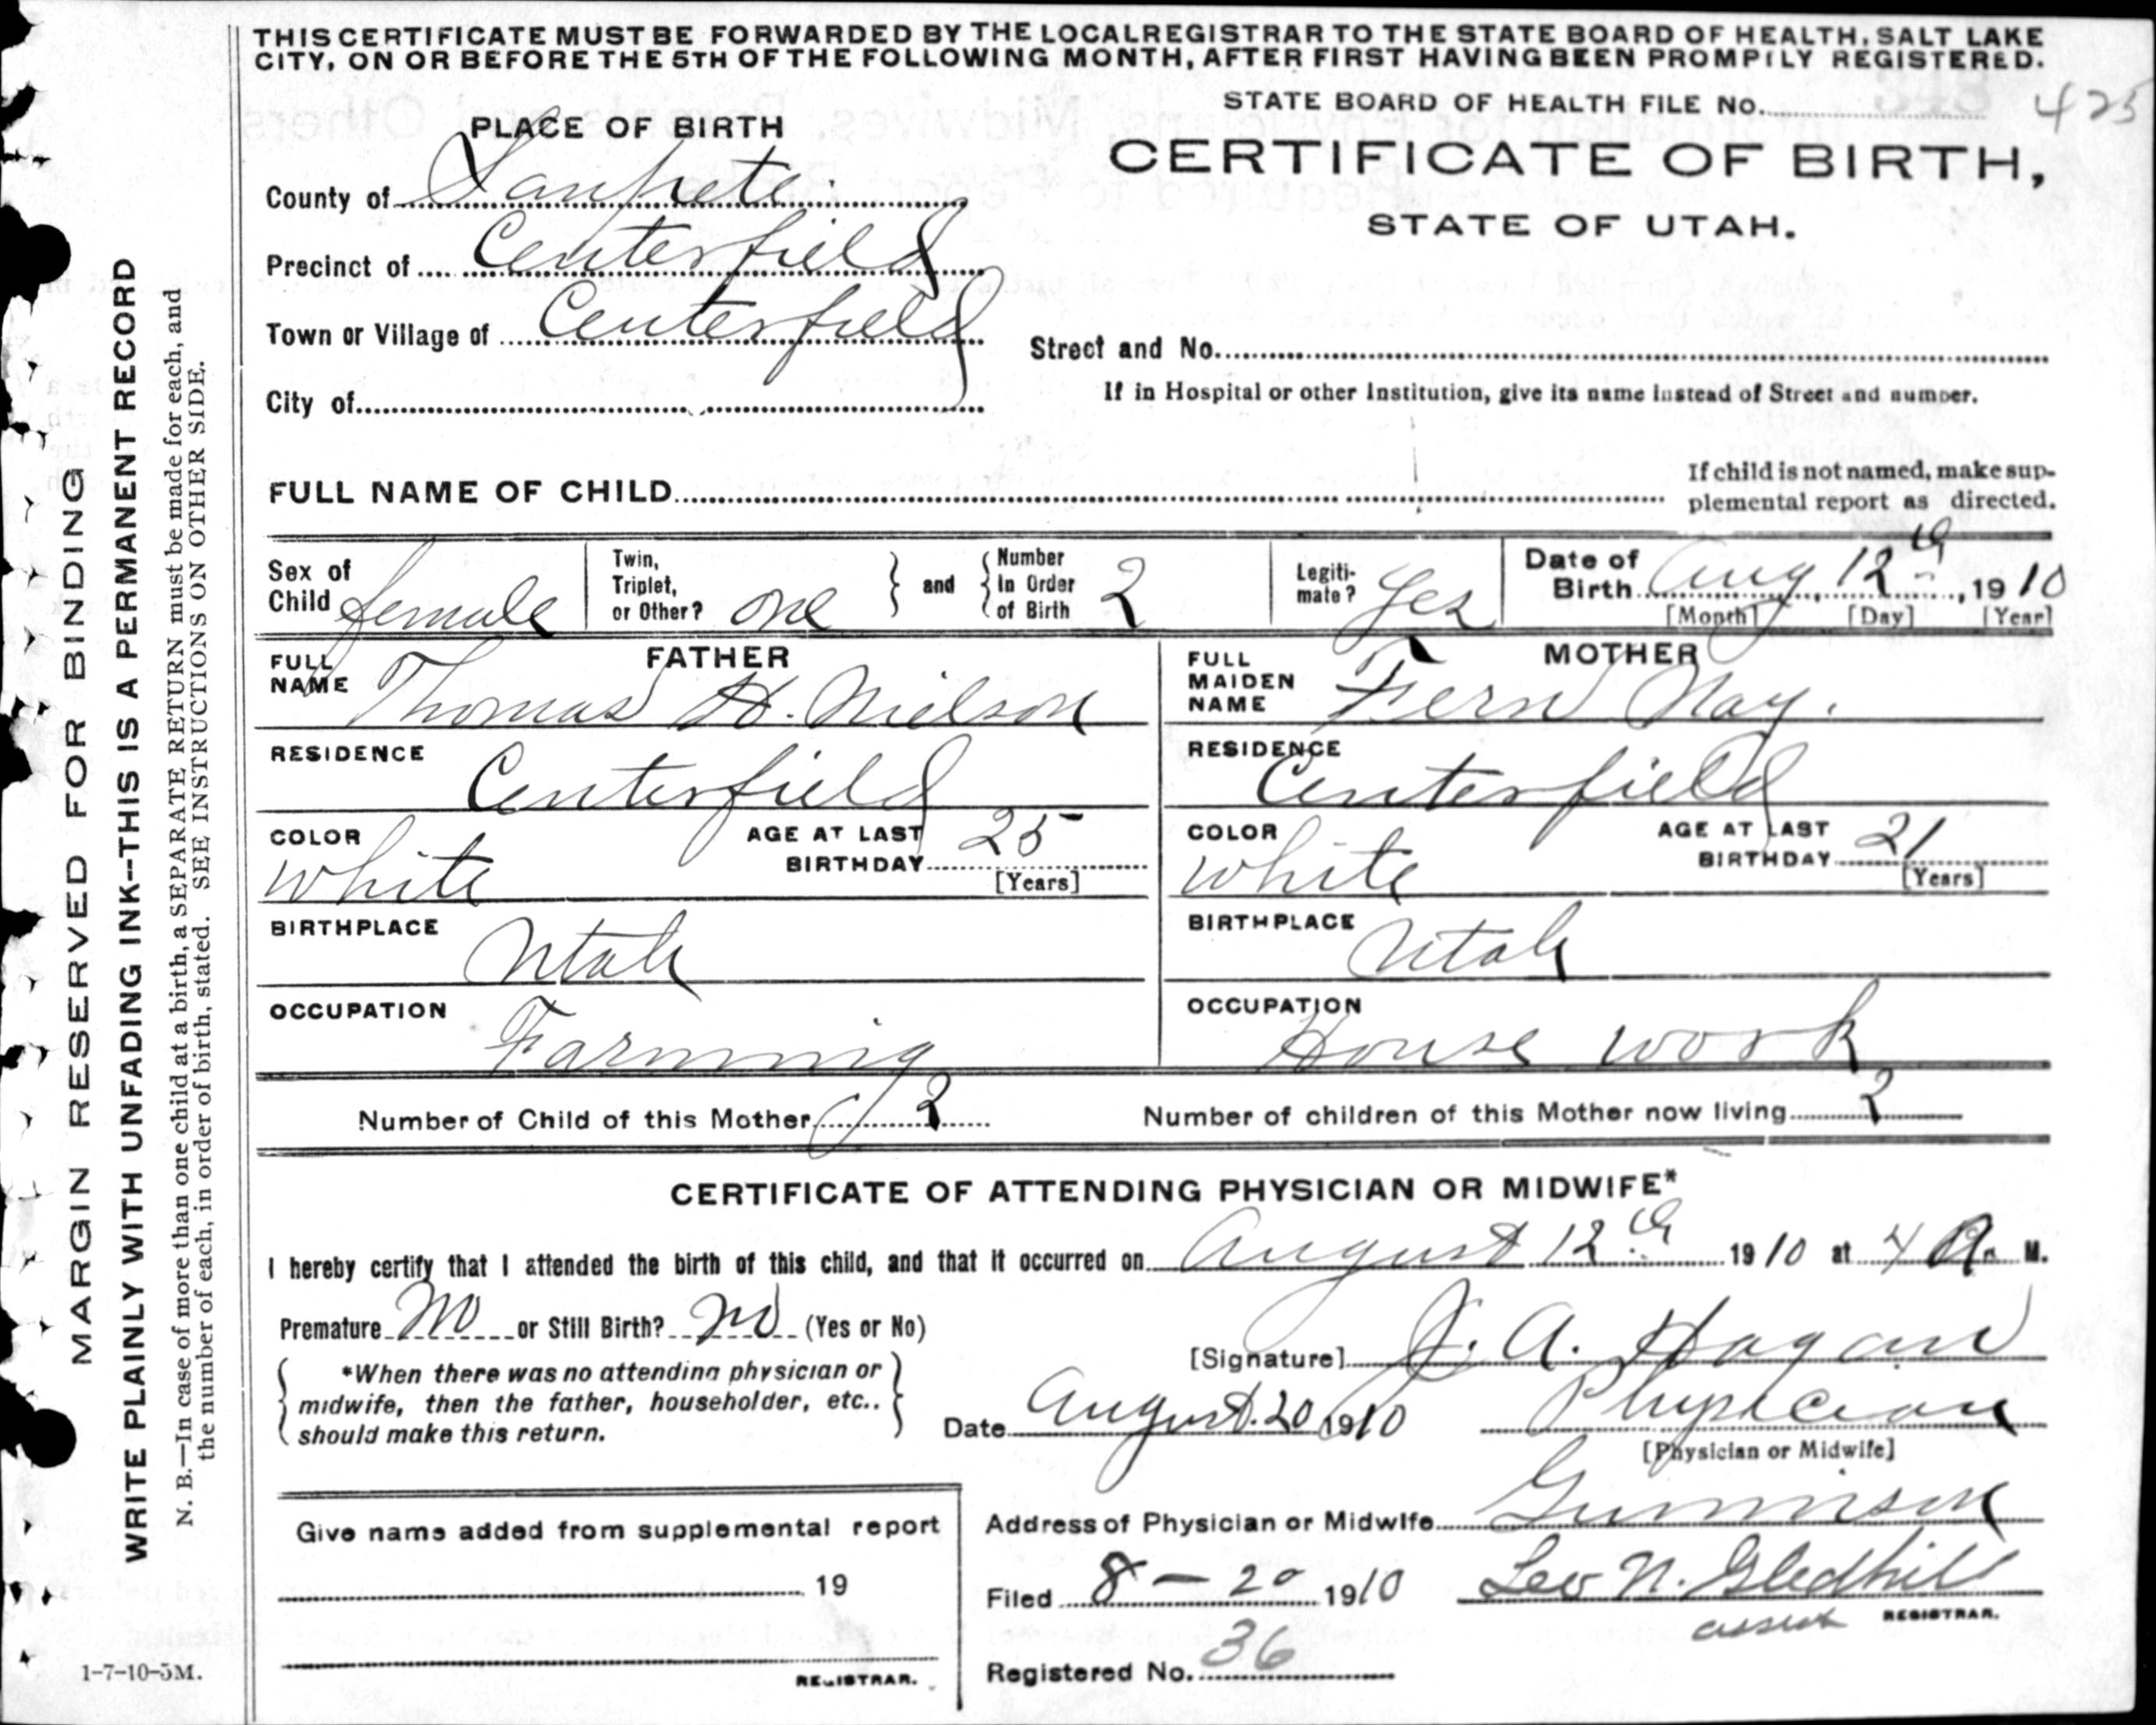 THIS CERTIFICATE MUST BE FORWARDED BY THE LOCAL REGISTRAR TO THE STATE BOARD OF HEALTH, SALT LAKE
CITY, ON OR BEFORE THE 5TH OF THE FOLLOWING MONTH, AFTER FIRST HAVING BEEN PROMPTLY REGISTERED.
STATE BOARD OF HEALTH FILE No. 425
PLACE OF BIRTH
CERTIFICATE OF BIRTH,
STATE OF UTAH.
County of Sanpete
Precinct of Centerfield
Town or Village of Centerfield
Street and No.
City of
If in Hospital or other Institution, give its name instead of Street and number.
FULL NAME OF CHILD
If child is not named, make sup-
plemental report as directed.
Sex of Child female
Twin, Triplet, or Other? one
and
Number In Order of Birth 2
Legiti-
mate? Yes
Date of Birth Aug 12th, 1910
[Month] [Day] [Year]
FATHER
FULL NAME Thomas H. Nielson
RESIDENCE Centerfield
COLOR white
AGE AT LAST BIRTHDAY 25
[Years]
BIRTHPLACE Utah
OCCUPATION Farming
MOTHER
FULL MAIDEN NAME Fern Nay.
RESIDENCE Centerfield
COLOR white
AGE AT LAST BIRTHDAY 21
[Years]
BIRTHPLACE Utah
OCCUPATION House work
Number of Child of this Mother 2
Number of children of this Mother now living 2
CERTIFICATE OF ATTENDING PHYSICIAN OR MIDWIFE*
I hereby certify that I attended the birth of this child, and that it occurred on August 12th 1910 at 4 A. M.
Premature No or Still Birth? no (Yes or No)
*When there was no attending physician or
midwife, then the father, householder, etc..
should make this return.
[Signature] J. A. Hagan
Date August. 20 1910
Physician
[Physician or Midwife]
Give name added from supplemental report
19
REGISTRAR.
Address of Physician or Midwife Gunnison
Filed 8 - 20 1910
Leo N. Gledhill
assist REGISTRAR.
Registered No. 36
MARGIN RESERVED FOR BINDING
WRITE PLAINLY WITH UNFADING INK--THIS IS A PERMANENT RECORD
N. B.—In case of more than one child at a birth, a SEPARATE RETURN must be made for each, and
the number of each, in order of birth, stated. SEE INSTRUCTIONS ON OTHER SIDE.
1-7-10-5M.